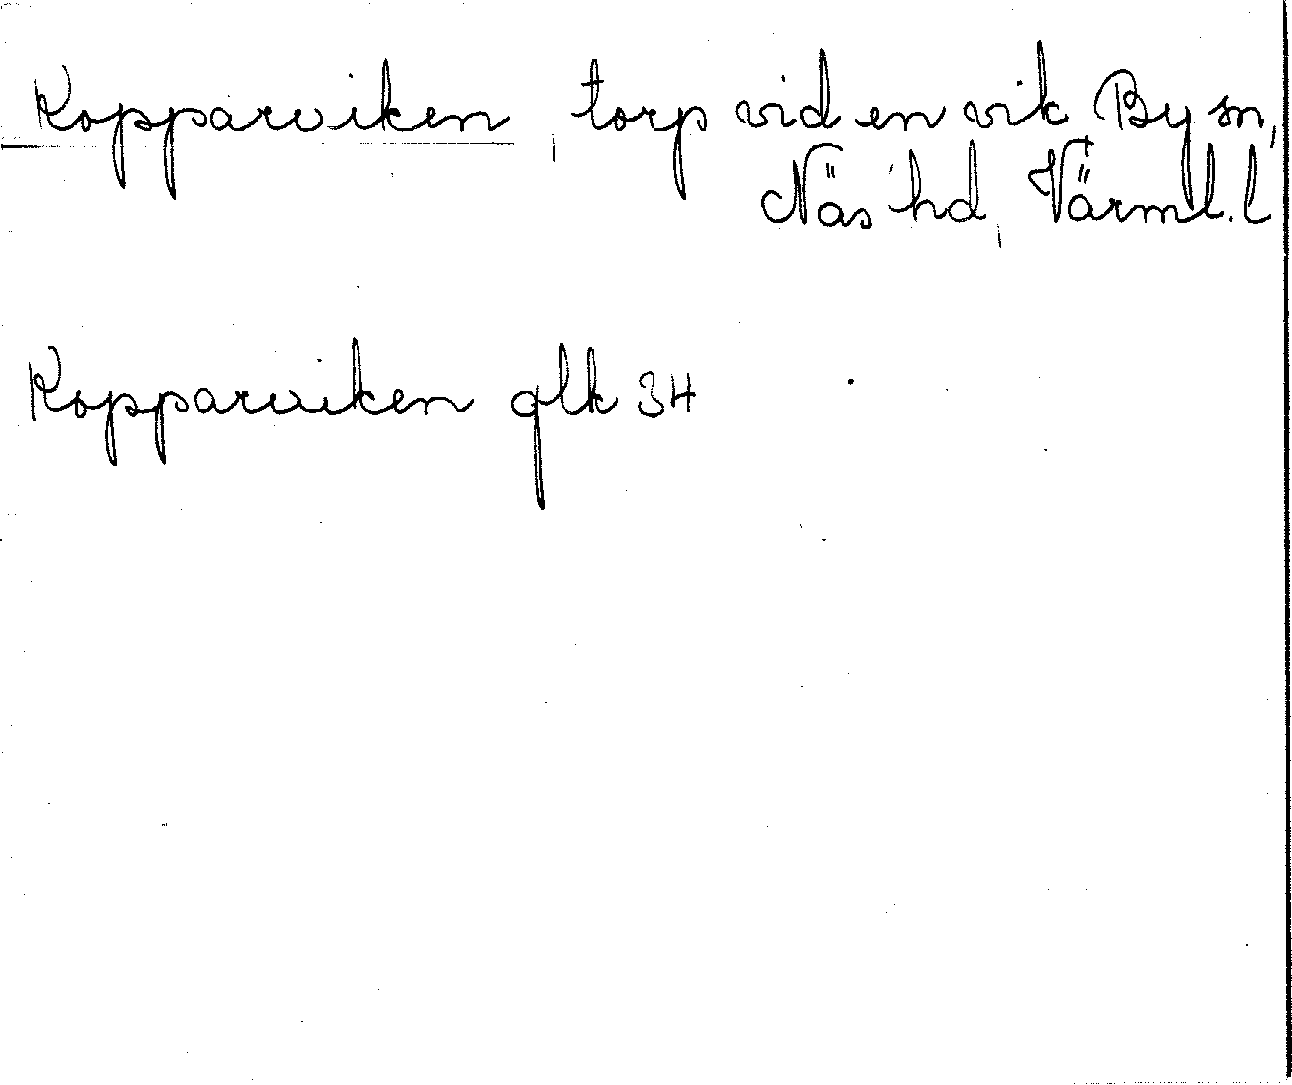 Kopparviken, torp vid en vik By sn,
Näs hd, Värml. l
Kopparviken glk 34